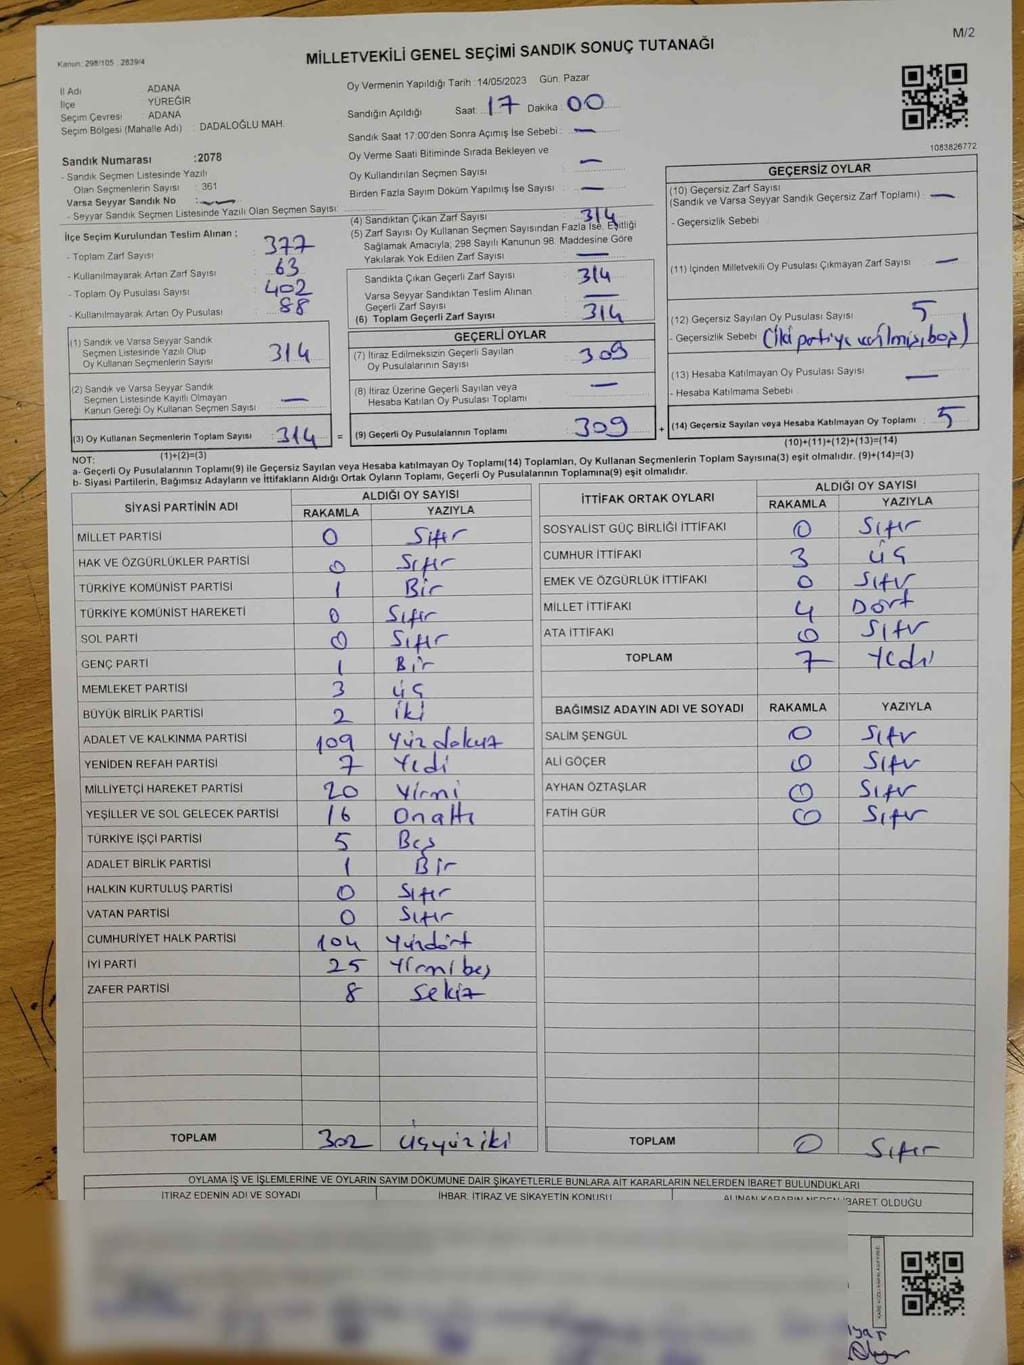 M/2
MİLLETVEKİLİ GENEL SEÇİMİ SANDIK SONUÇ TUTANAĞI
Kanun: 298/105 , 2839/4
İl Adı ADANA
İlçe YÜREĞİR
Seçim Çevresi ADANA
Seçim Bölgesi (Mahalle Adı) : DADALOĞLU MAH.
Sandık Numarası :2078
- Sandık Seçmen Listesinde Yazılı
Olan Seçmenlerin Sayısı : 361
Varsa Seyyar Sandık No —
- Seyyar Sandık Seçmen Listesinde Yazılı Olan Seçmen Sayısı:
Oy Vermenin Yapıldığı Tarih :14/05/2023 Gün: Pazar
Sandığın Açıldığı Saat: 17 Dakika: 00
Sandık Saat 17:00'den Sonra Açımış İse Sebebi: —
Oy Verme Saati Bitiminde Sırada Bekleyen ve
Oy Kullandırılan Seçmen Sayısı —
Birden Fazla Sayım Döküm Yapılmış İse Sayısı —
1083826772
İlçe Seçim Kurulundan Teslim Alınan ;
- Toplam Zarf Sayısı 377
- Kullanılmayarak Artan Zarf Sayısı 63
- Toplam Oy Pusulası Sayısı 402
- Kullanılmayarak Artan Oy Pusulası 88
(1) Sandık ve Varsa Seyyar Sandık
Seçmen Listesinde Yazılı Olup
Oy Kullanan Seçmenlerin Sayısı 314
(2) Sandık ve Varsa Seyyar Sandık
Seçmen Listesinde Kayıtlı Olmayan
Kanun Gereği Oy Kullanan Seçmen Sayısı —
(3) Oy Kullanan Seçmenlerin Toplam Sayısı 314 =
(1)+(2)=(3)
(4) Sandıktan Çıkan Zarf Sayısı 314
(5) Zarf Sayısı Oy Kullanan Seçmen Sayısından Fazla İse, Eşitliği
Sağlamak Amacıyla; 298 Sayılı Kanunun 98. Maddesine Göre
Yakılarak Yok Edilen Zarf Sayısı —
Sandıkta Çıkan Geçerli Zarf Sayısı 314
Varsa Seyyar Sandıktan Teslim Alınan
Geçerli Zarf Sayısı —
(6) Toplam Geçerli Zarf Sayısı 314
GEÇERLİ OYLAR
(7) İtiraz Edilmeksizin Geçerli Sayılan
Oy Pusulalarının Sayısı 309
(8) İtiraz Üzerine Geçerli Sayılan veya
Hesaba Katılan Oy Pusulası Toplamı —
(9) Geçerli Oy Pusulalarının Toplamı 309 +
GEÇERSİZ OYLAR
(10) Geçersiz Zarf Sayısı
(Sandık ve Varsa Seyyar Sandık Geçersiz Zarf Toplamı) —
- Geçersizlik Sebebi
(11) İçinden Milletvekili Oy Pusulası Çıkmayan Zarf Sayısı —
(12) Geçersiz Sayılan Oy Pusulası Sayısı 5
- Geçersizlik Sebebi (İki partiye verilmiş, boş)
(13) Hesaba Katılmayan Oy Pusulası Sayısı —
- Hesaba Katılmama Sebebi
(14) Geçersiz Sayılan veya Hesaba Katılmayan Oy Toplamı 5
(10)+(11)+(12)+(13)=(14)
NOT:
a- Geçerli Oy Pusulalarının Toplamı(9) ile Geçersiz Sayılan veya Hesaba katılmayan Oy Toplamı(14) Toplamları, Oy Kullanan Seçmenlerin Toplam Sayısına(3) eşit olmalıdır. (9)+(14)=(3)
b- Siyasi Partilerin, Bağımsız Adayların ve İttifakların Aldığı Ortak Oyların Toplamı, Geçerli Oy Pusulalarının Toplamına(9) eşit olmalıdır.
SİYASİ PARTİNİN ADI ALDIĞI OY SAYISI
RAKAMLA YAZIYLA
MİLLET PARTİSİ 0 Sıfır
HAK VE ÖZGÜRLÜKLER PARTİSİ 0 Sıfır
TÜRKİYE KOMÜNİST PARTİSİ 1 Bir
TÜRKİYE KOMÜNİST HAREKETİ 0 Sıfır
SOL PARTİ 0 Sıfır
GENÇ PARTİ 1 Bir
MEMLEKET PARTİSİ 3 üç
BÜYÜK BİRLİK PARTİSİ 2 iki
ADALET VE KALKINMA PARTİSİ 109 Yüz dokuz
YENİDEN REFAH PARTİSİ 7 Yedi
MİLLİYETÇİ HAREKET PARTİSİ 20 Yirmi
YEŞİLLER VE SOL GELECEK PARTİSİ 16 Onaltı
TÜRKİYE İŞÇİ PARTİSİ 5 Beş
ADALET BİRLİK PARTİSİ 1 Bir
HALKIN KURTULUŞ PARTİSİ 0 Sıfır
VATAN PARTİSİ 0 Sıfır
CUMHURİYET HALK PARTİSİ 104 Yüzdört
İYİ PARTİ 25 Yirmi beş
ZAFER PARTİSİ 8 Sekiz
TOPLAM 302 üçyüz iki
İTTİFAK ORTAK OYLARI ALDIĞI OY SAYISI
RAKAMLA YAZIYLA
SOSYALİST GÜÇ BİRLİĞİ İTTİFAKI 0 Sıfır
CUMHUR İTTİFAKI 3 üç
EMEK VE ÖZGÜRLÜK İTTİFAKI 0 Sıfır
MİLLET İTTİFAKI 4 Dört
ATA İTTİFAKI 0 Sıfır
TOPLAM 7 Yedi
BAĞIMSIZ ADAYIN ADI VE SOYADI RAKAMLA YAZIYLA
SALİM ŞENGÜL 0 Sıfır
ALİ GÖÇER 0 Sıfır
AYHAN ÖZTAŞLAR 0 Sıfır
FATİH GÜR 0 Sıfır
TOPLAM 0 Sıfır
OYLAMA İŞ VE İŞLEMLERİNE VE OYLARIN SAYIM DÖKÜMÜNE DAİR ŞİKAYETLERLE BUNLARA AİT KARARLARIN NELERDEN İBARET BULUNDUKLARI
İTİRAZ EDENİN ADI VE SOYADI İHBAR, İTİRAZ VE ŞİKAYETİN KONUSU ALINAN KARARIN NEDEN İBARET OLDUĞU